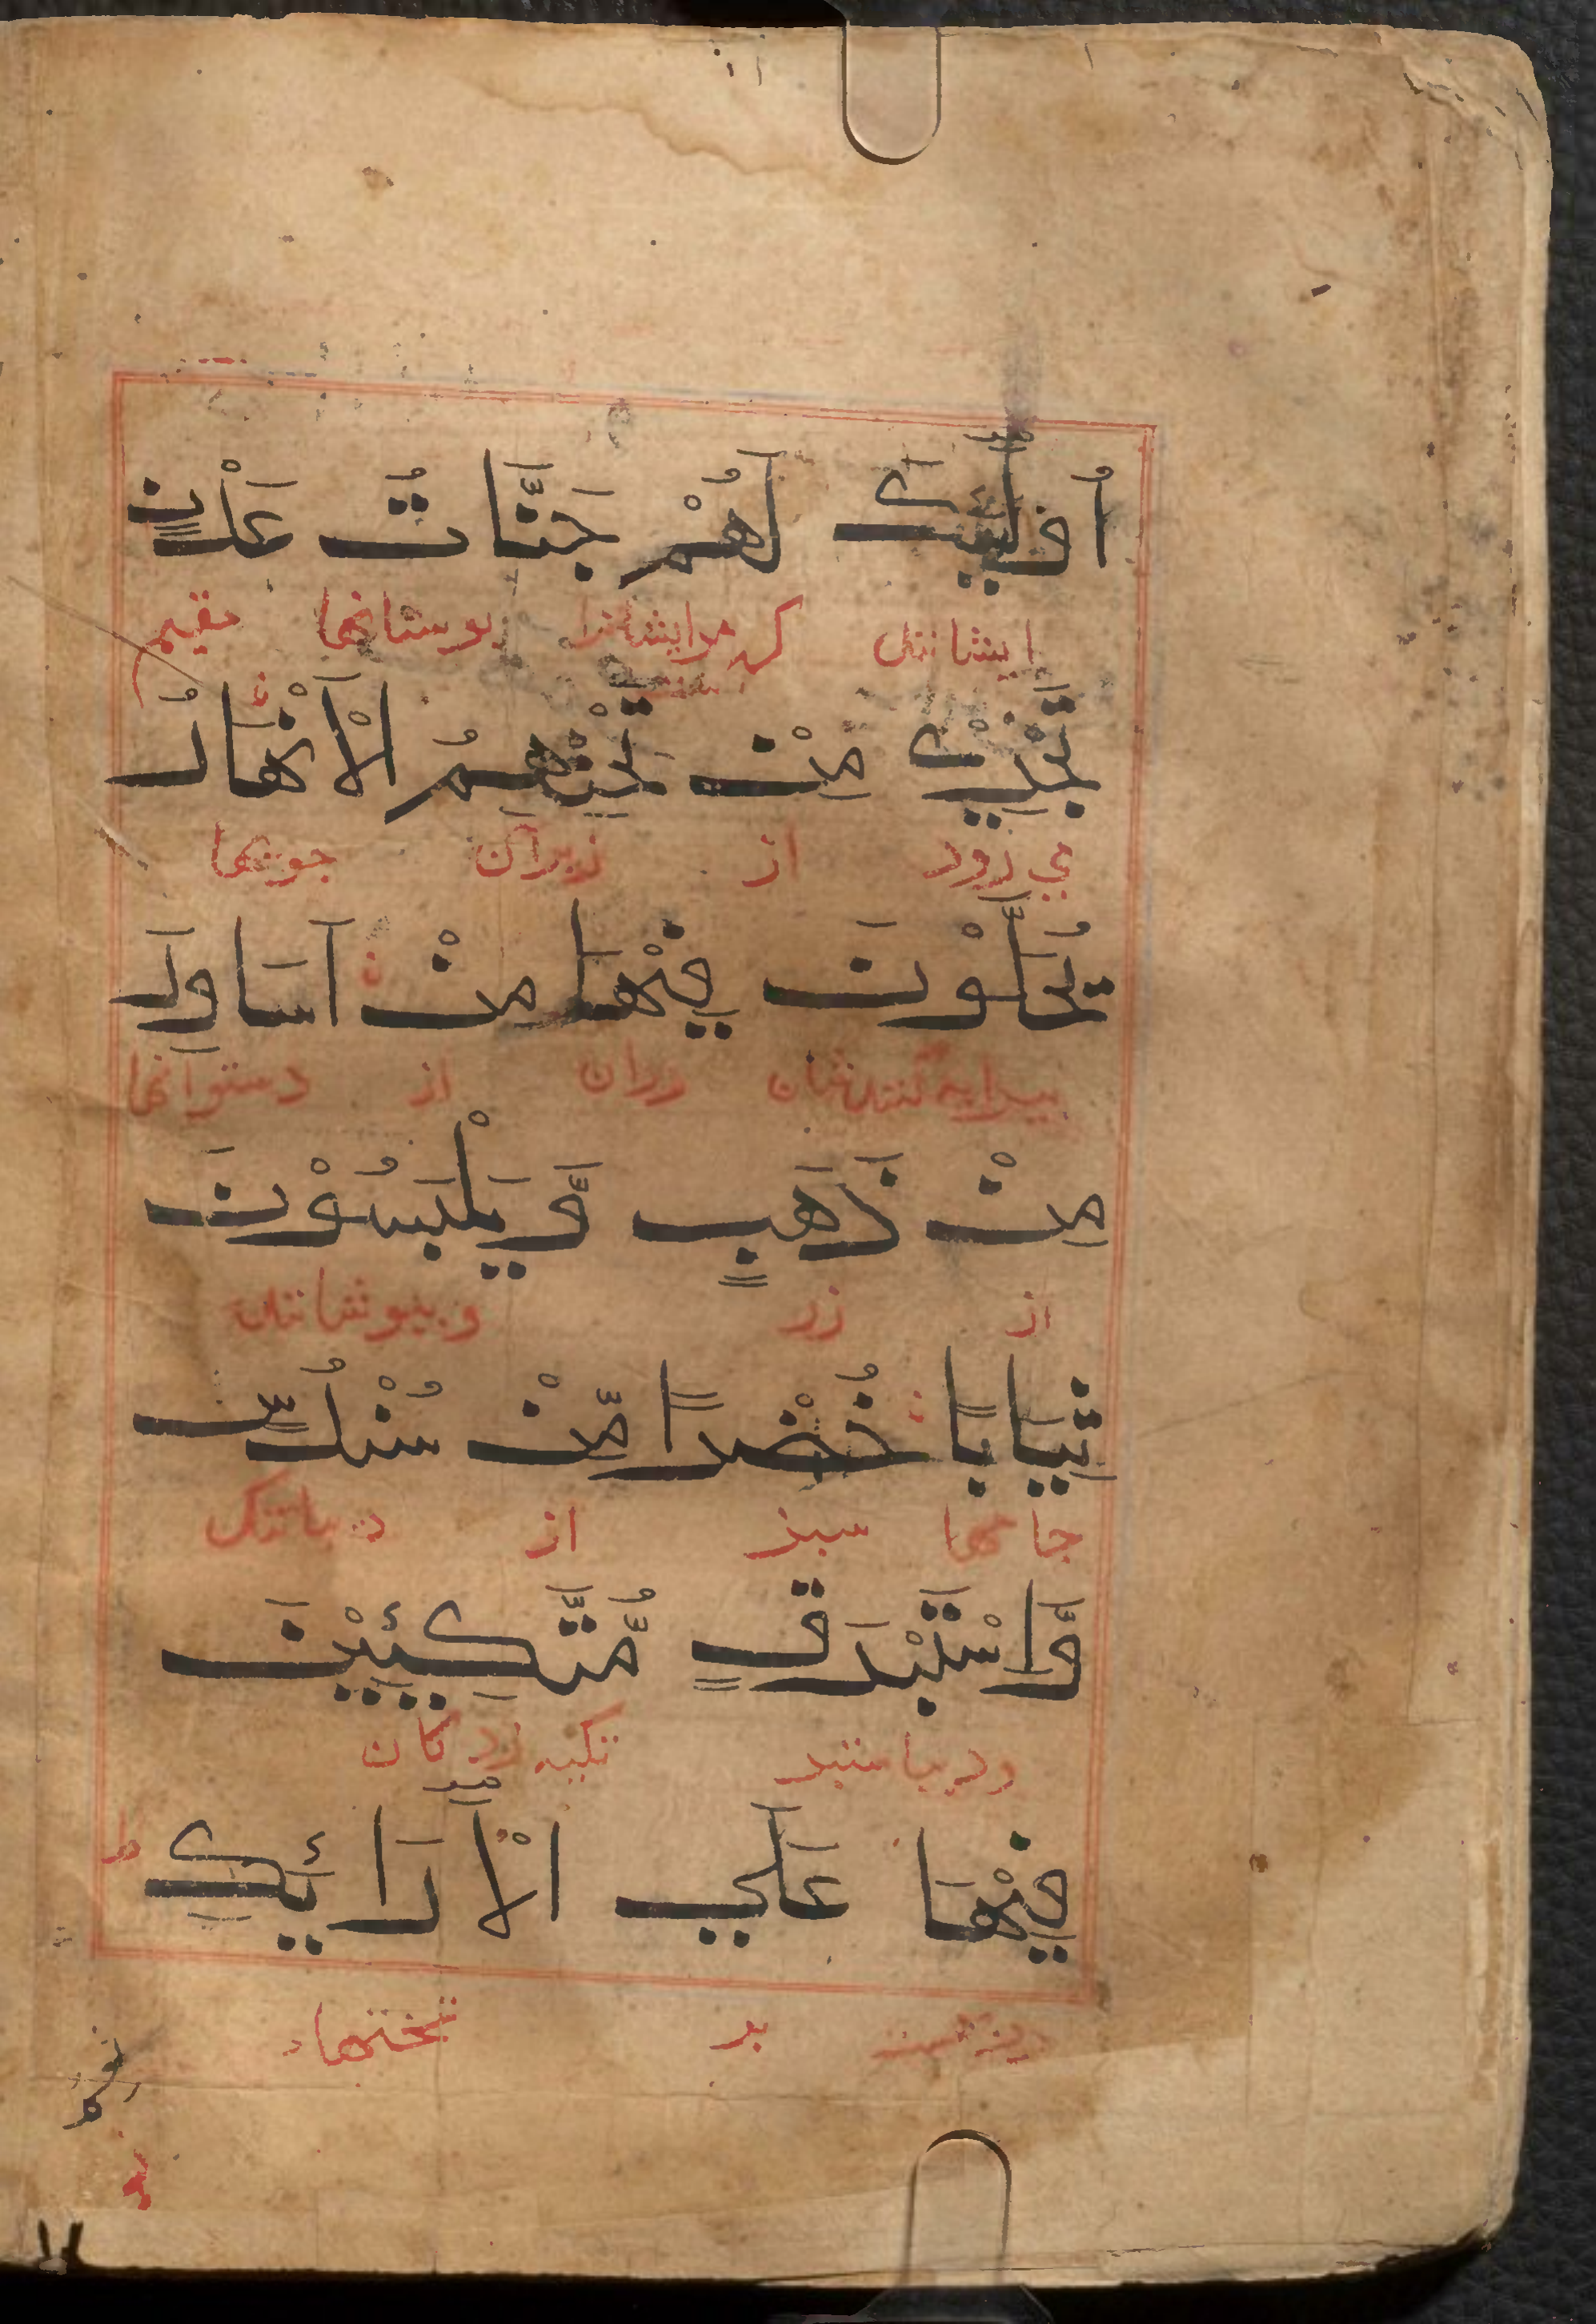 أُولَٰئِكَ لَهُمْ جَنَّاتُ عَدْنٍ
ایشانند که مرایشانرا بوستانها مقیم
تَجْرِيْ مِنْ تَحْتِهِمُ الْأَنْهَارُ
می رود از زیران جویها
يُحَلَّوْنَ فِيْهَا مِنْ اَسَاوِرَ
پیرایه کنندشان دران از دستوانها
مِنْ ذَهَبٍ وَّيَلْبَسُوْنَ
از زر وبپوشانند
ثِيَابًا خُضْرًا مِّنْ سُنْدُسٍ
جامها سبز از دیبا تنک
وَّاِسْتَبْرَقٍ مُّتَّكِئِيْنَ
ودیبا ستبر تکیه زدکان
فِيْهَا عَلَي الْأَرَائِكِ ط
بر تختهاء